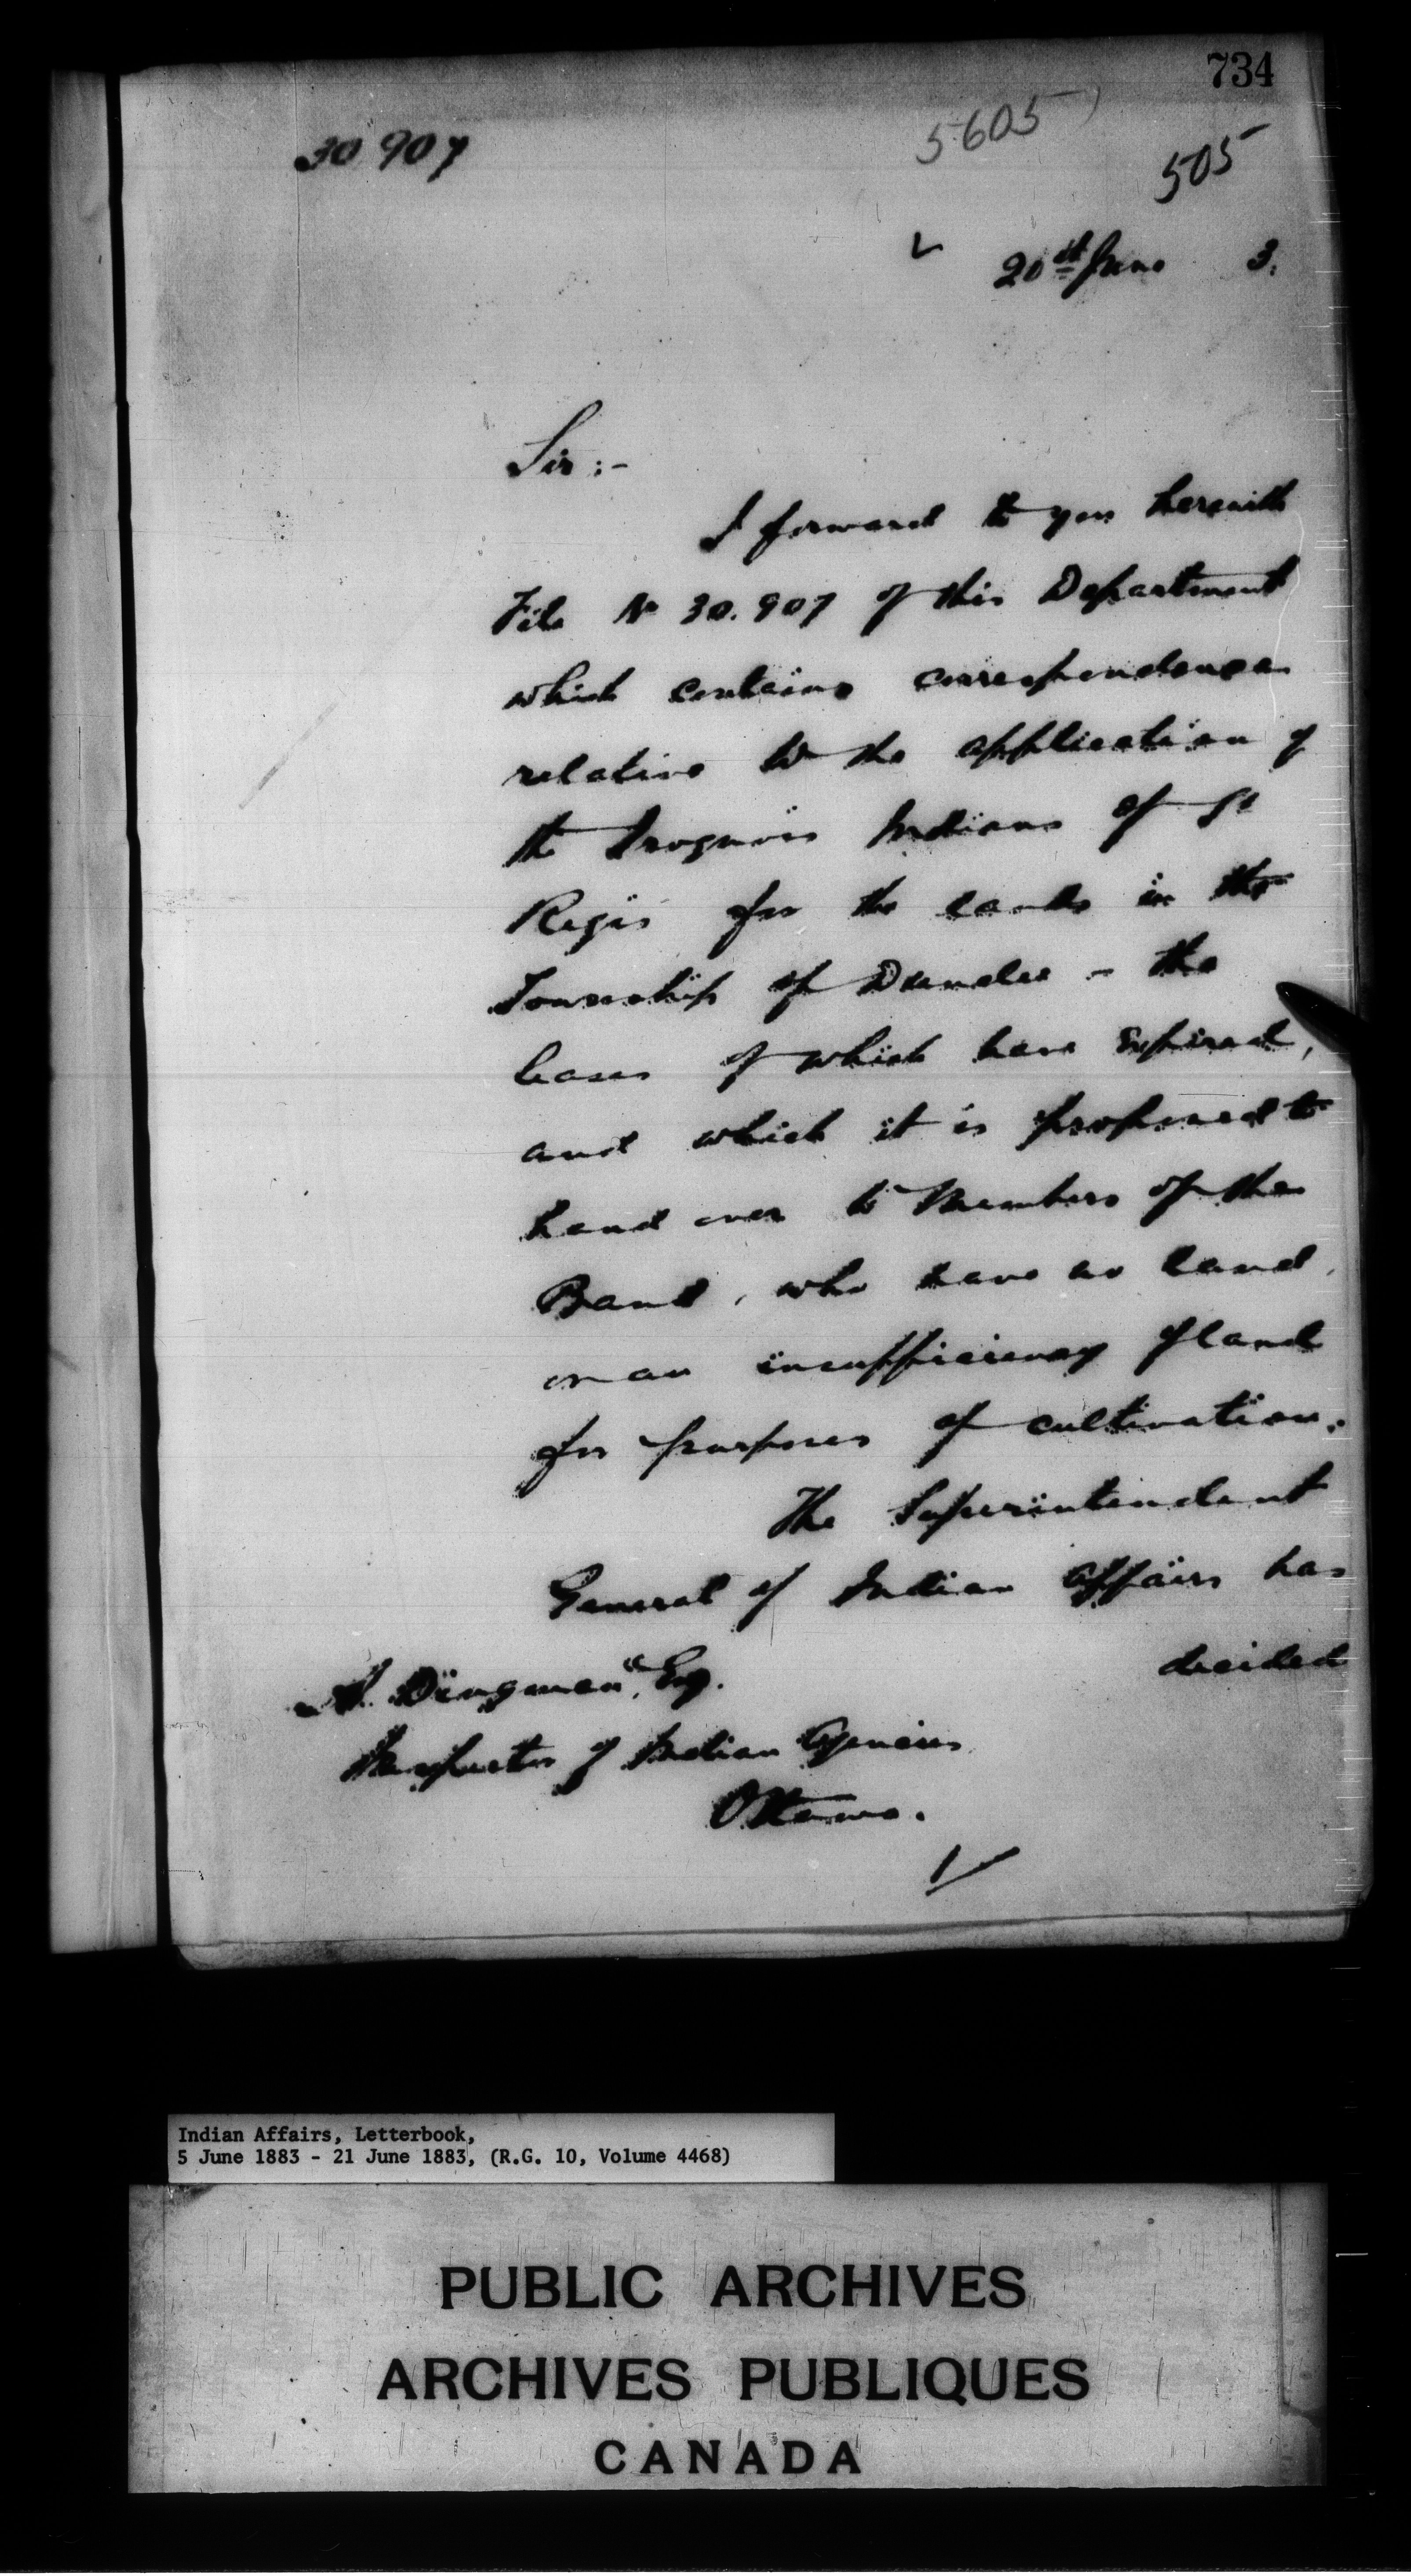 734
30 907
5605
505
20th June 3.
Sir :-
I forward to you herewith
File No 30.907 of this Department
which contains correspondence
relative to the application of
the Iroquois Indians of St
Regis for the lands in the
Township of Dundee - the
leases of which have expired,
and which it is proposed to
hand over to Members of the
Band, who have no land,
or an insufficiency of land
for purposes of cultivation.
The Superintendent
General of Indian Affairs has
decided
A. Dingman, Esq.
Inspector of Indian Agencies
Ottawa.
Indian Affairs, Letterbook,
5 June 1883 - 21 June 1883, (R.G. 10, Volume 4468)
PUBLIC ARCHIVES
ARCHIVES PUBLIQUES
CANADA